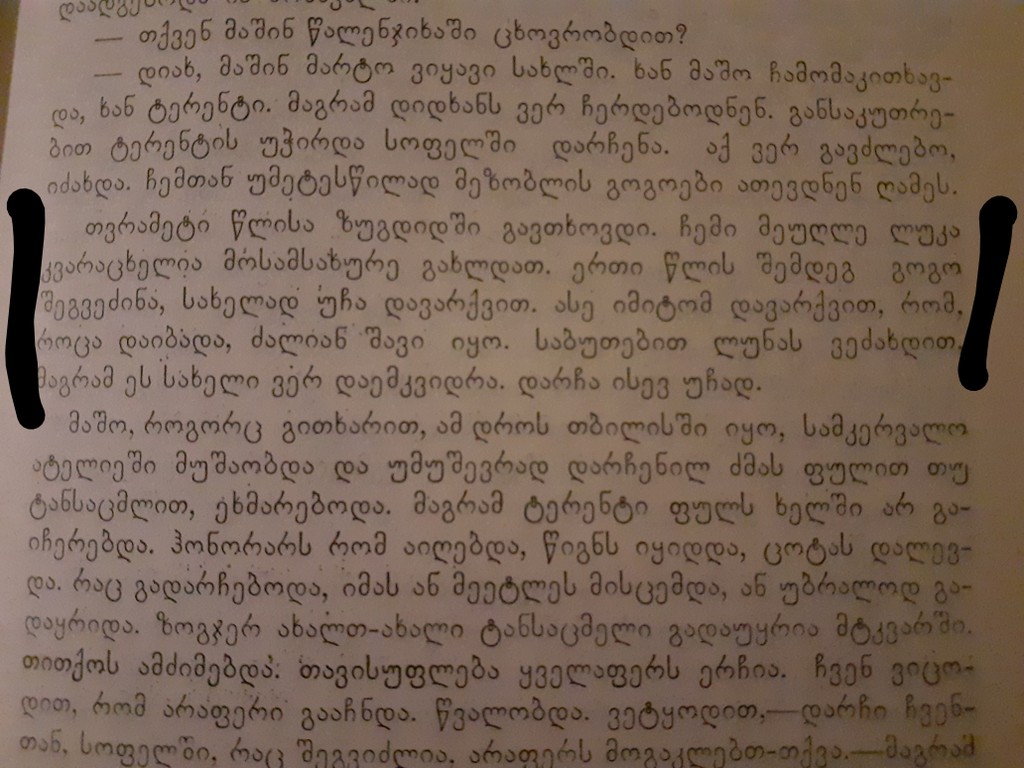 — თქვენ მაშინ წალენჯიხაში ცხოვრობდით?
— დიახ, მაშინ მარტო ვიყავი სახლში. ხან მაშო ჩამომაკითხავ-
და, ხან ტერენტი. მაგრამ დიდხანს ვერ ჩერდებოდნენ. განსაკუთრე-
ბით ტერენტის უჭირდა სოფელში დარჩენა. აქ ვერ გავძლებო,
იძახდა. ჩემთან უმეტესწილად მეზობლის გოგოები ათევდნენ ღამეს.
თვრამეტი წლისა ზუგდიდში გავთხოვდი. ჩემი მეუღლე ლუკა
კვარაცხელია მოსამსახურე გახლდათ. ერთი წლის შემდეგ გოგო
შეგვეძინა, სახელად უჩა დავარქვით. ასე იმიტომ დავარქვით, რომ,
როცა დაიბადა, ძალიან შავი იყო. საბუთებით ლუნას ვეძახდით,
მაგრამ ეს სახელი ვერ დაემკვიდრა. დარჩა ისევ უჩად.
მაშო, როგორც გითხარით, ამ დროს თბილისში იყო, სამკერვალო
ატელიეში მუშაობდა და უმუშევრად დარჩენილ ძმას ფულით თუ
ტანსაცმლით, ეხმარებოდა. მაგრამ ტერენტი ფულს ხელში არ გა-
იჩერებდა. ჰონორარს რომ აიღებდა, წიგნს იყიდდა, ცოტას დალევ-
და. რაც გადარჩებოდა, იმას ან მეეტლეს მისცემდა, ან უბრალოდ გა-
დაყრიდა. ზოგჯერ ახალთ-ახალი ტანსაცმელი გადაუყრია მტკვარში.
თითქოს ამძიმებდა. თავისუფლება ყველაფერს ერჩია. ჩვენ ვიცო-
დით, რომ არაფერი გააჩნდა. წვალობდა. ვეტყოდით,—დარჩი ჩვენ-
თან, სოფელში, რაც შეგვიძლია, არაფერს მოგაკლებთ-თქვა.—მაგრამ